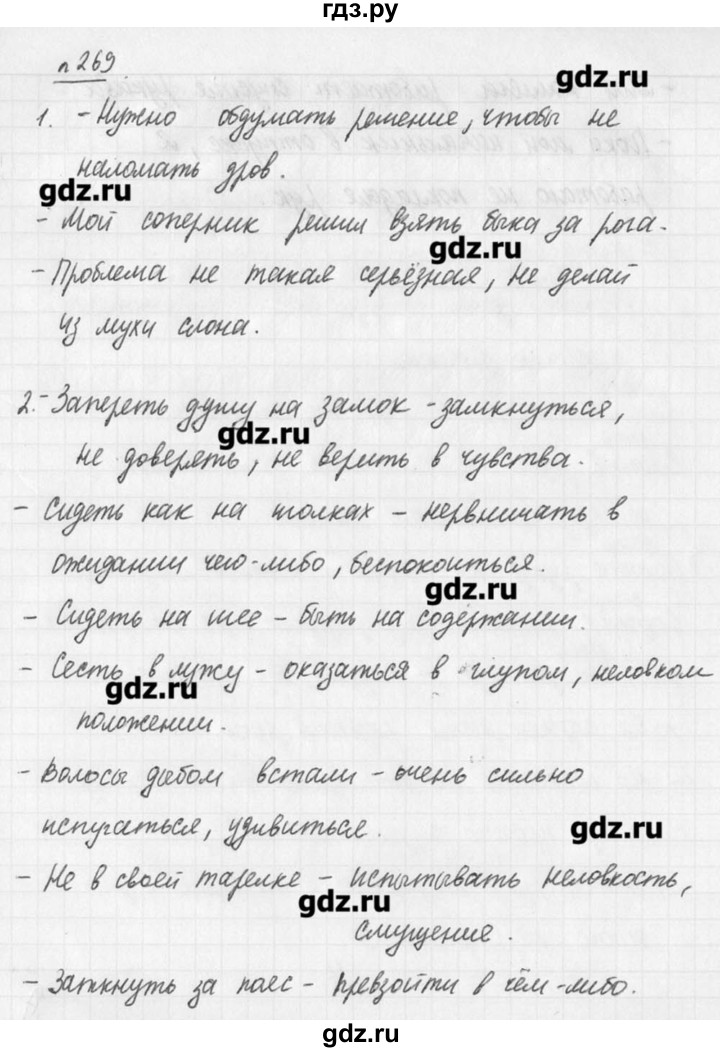 гдз.ру
n 269
1. - Нужно обдумать решение, чтобы не
наломать дров.
gdz.ru
- Мой соперник решил взять быка за рога.
gdz.ru
- Проблема не такая серьёзная, не делай
из мухи слона.
2. - Запереть душу на замок - замкнуться,
gdz.ru
не доверять, не верить в чувства.
- Сидеть как на иголках - нервничать в
ожидании чего-либо, беспокоиться.
gdz.ru
- Сидеть на шее - быть на содержании.
- Сесть в лужу - оказаться в глупом, неловком
gdz.ru
положении.
- Волосы дыбом встали - очень сильно
испугаться, удивиться.
gdz.ru
- Не в своей тарелке - испытывать неловкость,
gdz.ru
смущение.
- Заткнуть за пояс - превзойти в чём-либо.
gdz.ru